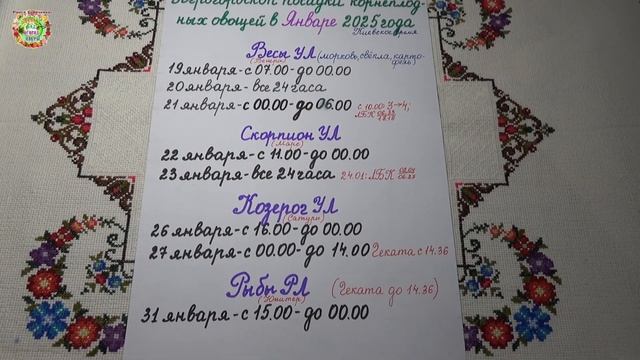 посадки корнеплод-
ных овощей в Январе 2025 года
Киевское время
Весы УЛ (морковь, свёкла, карто-
(Венера) фель)
19 января - с 07.00 - до 00.00
20 января - все 24 часа
21 января - с 00.00 - до 06.00 с 10.00: 3→4;
ЛБК
Скорпион УЛ
(Марс)
22 января - с 11.00 - до 00.00
23 января - все 24 часа 24.01: ЛБК
Козерог УЛ
(Сатурн)
26 января - с 16.00 - до 00.00
27 января - с 00.00 - до 14.00 Геката с 14.36
Рыбы РЛ (Геката до 14.36)
(Юпитер)
31 января - с 15.00 - до 00.00